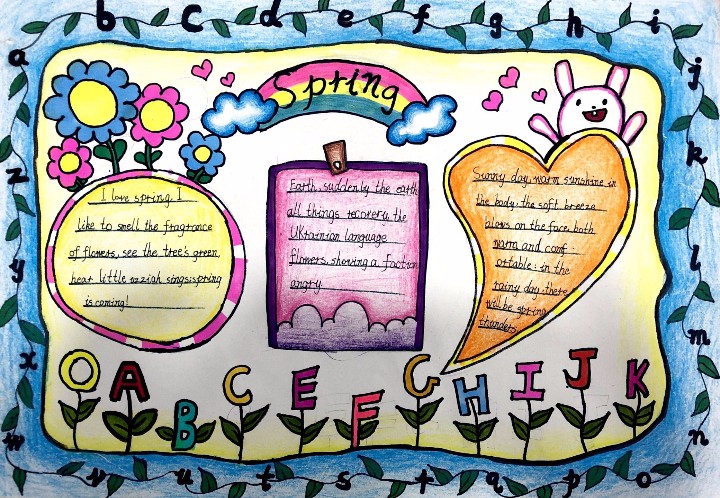 a b c d e f g h i
j
k
l
m
n
z
y
x
w v u t s r q p o
Spring
I love spring, I
like to smell the fragrance
of flowers, see the tree's green
hear little naziah sings:spring
is coming!
Earth, suddenly the earth
all things recovery, the
Ukrainian language
flowers, showing a faction
angry
Sunny day, warm sunshine in
the body, the soft breeze
blows on the face, both
warm and comf-
ortable; in the
rainy day, there
will be spring
thunder,
O A B C E F G H I J K